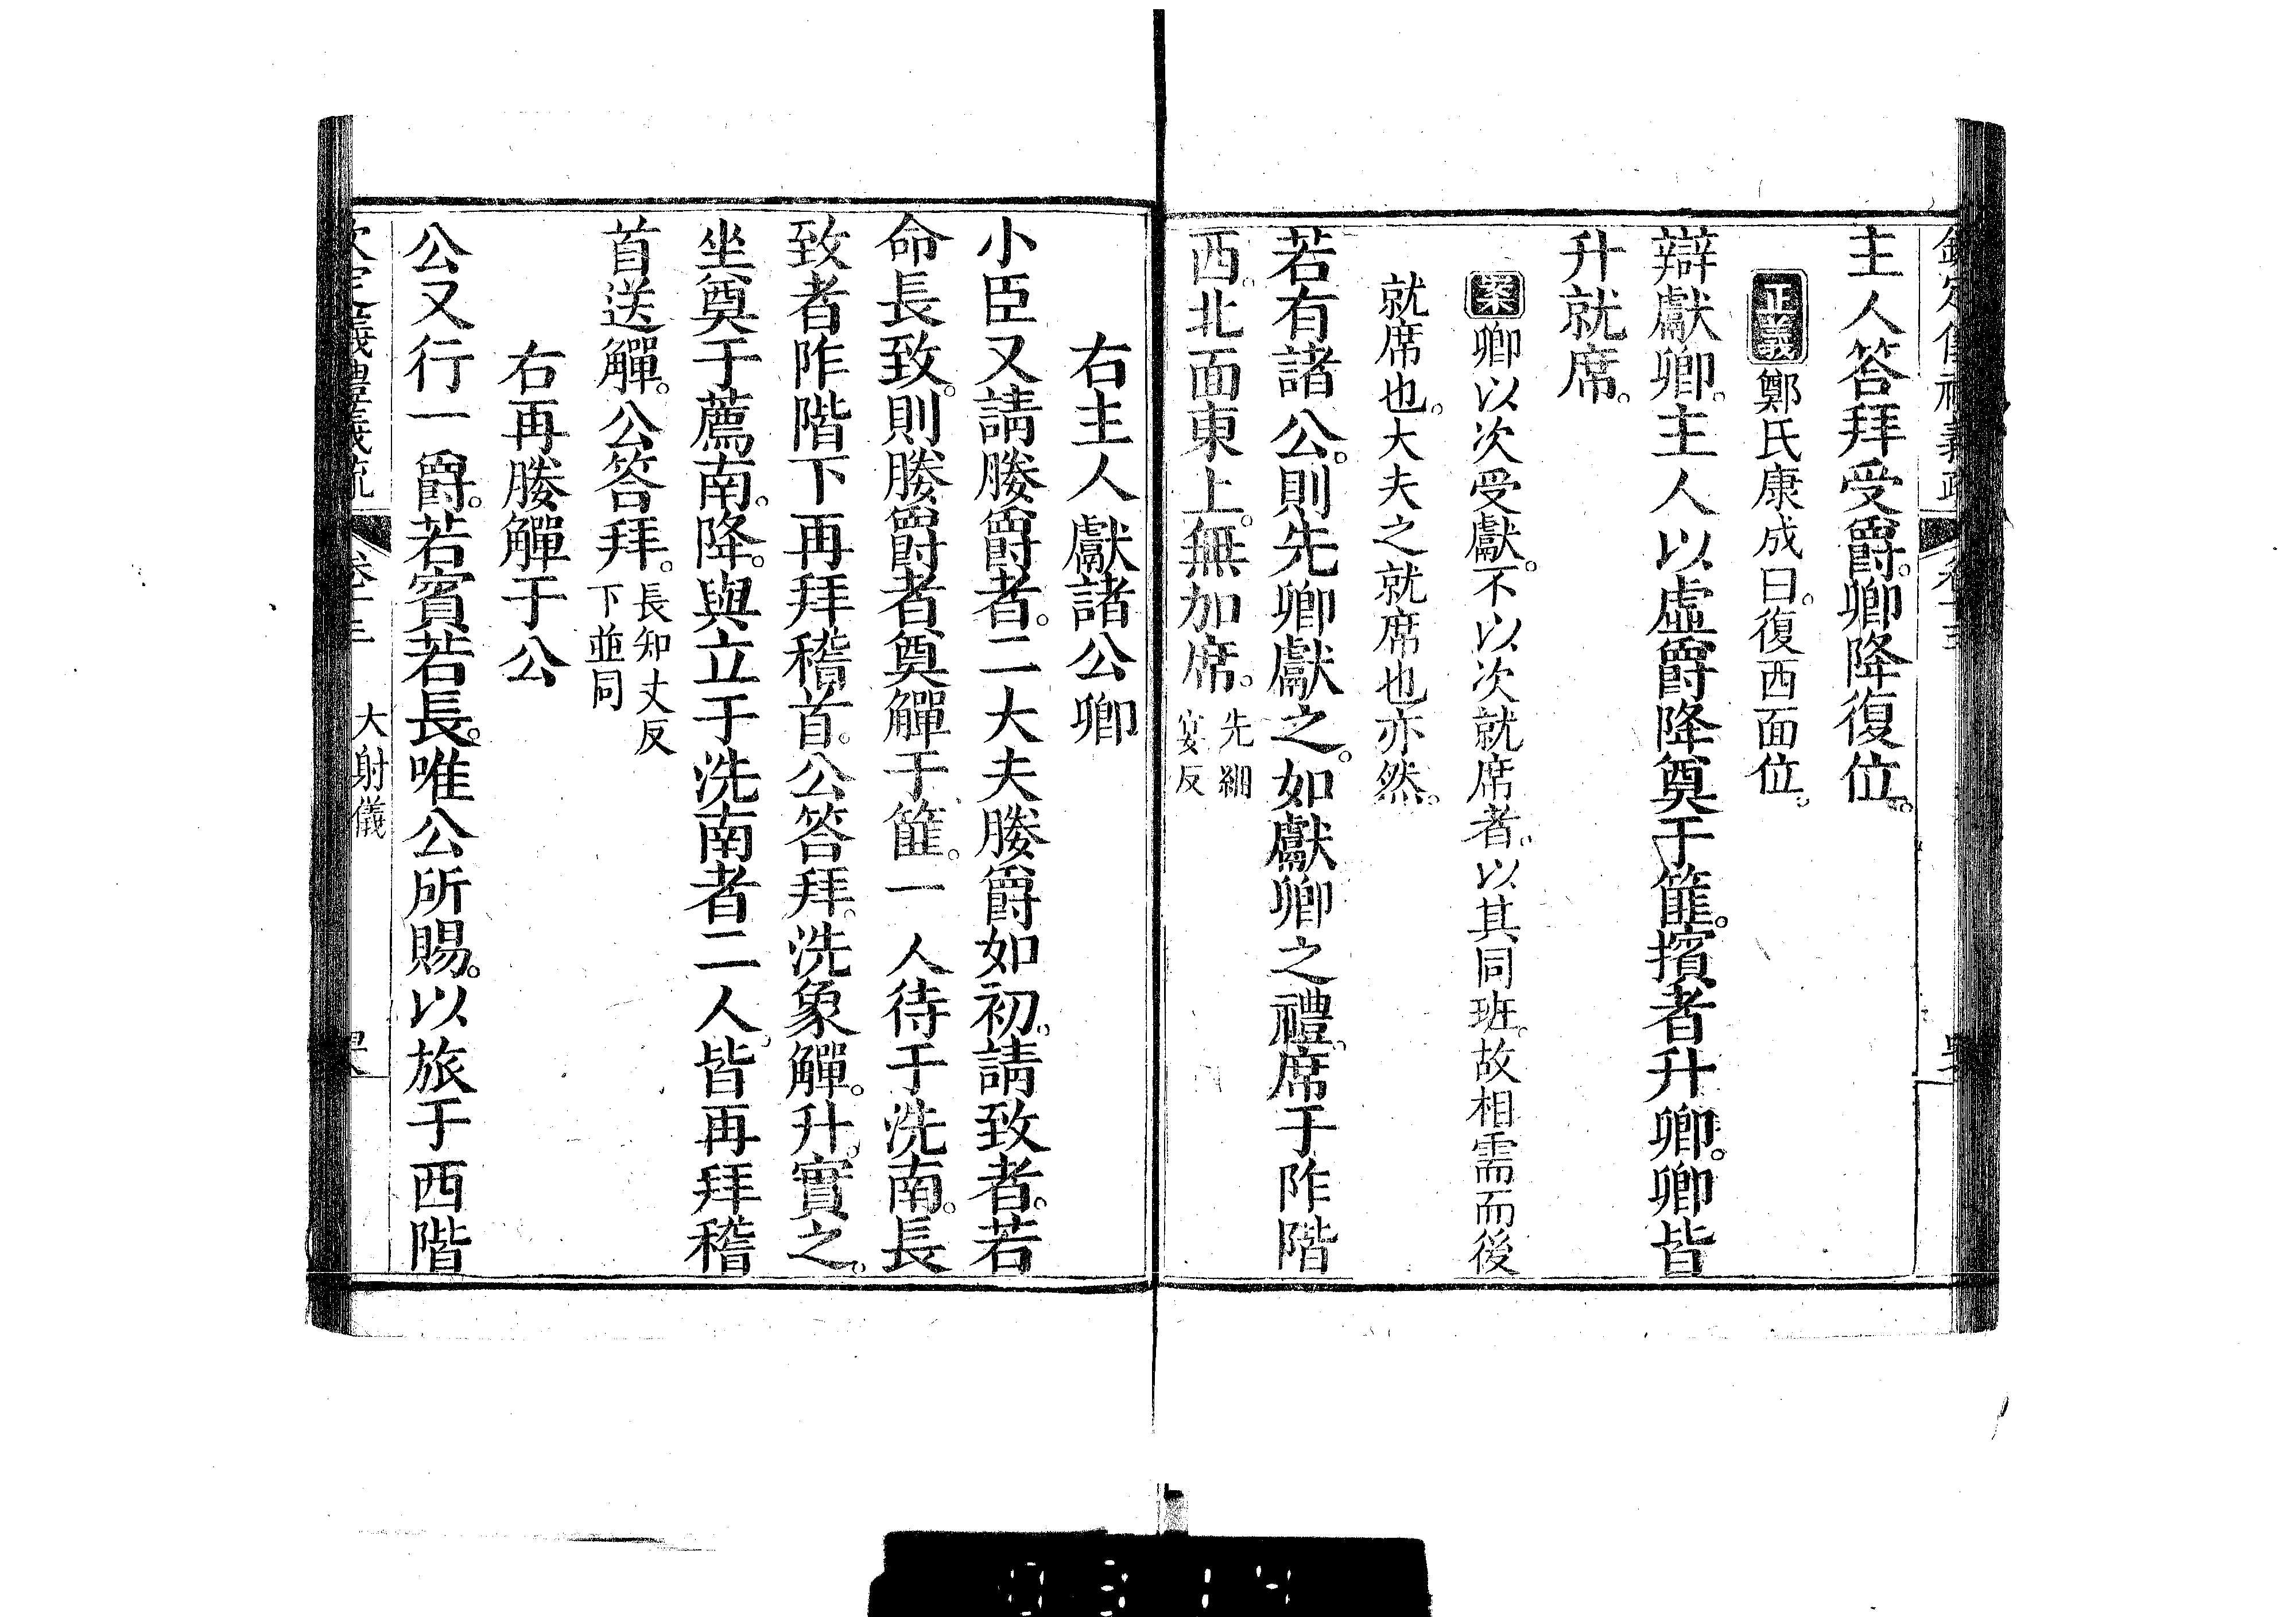 主人答拜受爵。卿降復位。
正義 鄭氏康成曰。復西面位。
辯獻卿。主人以虛爵降奠于篚。擯者升卿。卿皆
升就席。
案 卿以次受獻。不以次就席者。以其同班。故相需而後
就席也。大夫之就席也亦然。
若有諸公。則先卿獻之。如獻卿之禮。席于阼階
西。北面東上。無加席。先綢宴反
右主人獻諸公卿
小臣又請媵爵者。二大夫媵爵如初。請致者。若
命長致。則媵爵者奠觶于篚。一人待于洗南。長
致者阼階下再拜稽首。公答拜。洗象觶。升。實之。
坐奠于薦南。降。與立于洗南者二人。皆再拜稽
首送觶。公答拜。長知丈反下並同
右再媵觶于公
公又行一爵。若賓若長。唯公所賜。以旅于西階
大射儀
0314